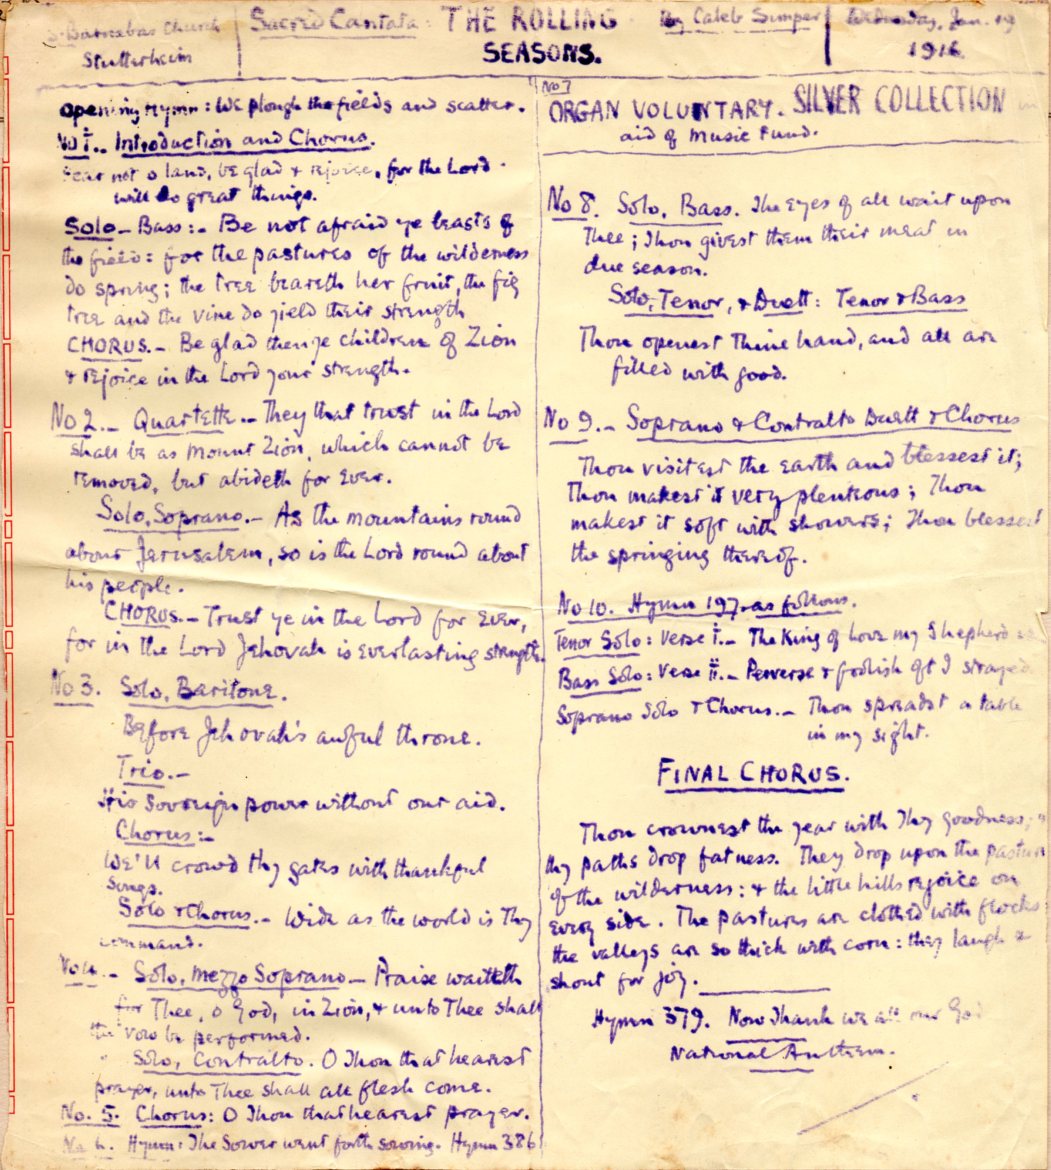 St Barnabas Church
Stutterheim
Sacred Cantata: THE ROLLING
SEASONS.
By Caleb Simper
Wednesday, Jan. 19
1916
Opening Hymn: We plough the fields and scatter.
No 1.- Introduction and Chorus.
Fear not o land, be glad & rejoice, for the Lord
will do great things.
Solo - Bass:- Be not afraid ye beasts of
the field: for the pastures of the wilderness
do spring; the tree beareth her fruit, the fig
tree and the vine do yield their strength
CHORUS.- Be glad then ye children of Zion
& rejoice in the Lord your strength.
No 2.- Quartette.- They that trust in the Lord
shall be as Mount Zion, which cannot be
removed, but abideth for ever.
Solo, Soprano.- As the mountains round
about Jerusalem, so is the Lord round about
his people.
CHORUS.- Trust ye in the Lord for Ever,
for in the Lord Jehovah is everlasting strength.
No 3. Solo, Baritone.
Before Jehovah's awful throne.
Trio.-
His Sovreign power without our aid.
Chorus:-
We'll crowd thy gates with thankful
songs.
Solo & Chorus.- Wide as the world is Thy
command.
No 4.- Solo, Mezzo Soprano - Praise waiteth
for Thee, o God, in Zion, & unto Thee shall
the vow be performed.
Solo, Contralto. O Thou that hearest
prayer, unto Thee shall all flesh come.
No. 5. Chorus: O Thou that hearest prayer.
No 6. Hymn: The Sower went forth sowing. Hymn 386
No 7
ORGAN VOLUNTARY. SILVER COLLECTION in
aid of Music Fund.
No 8. Solo, Bass. The Eyes of all wait upon
Thee; Thou givest them their meat in
due season.
Solo, Tenor, & Duett: Tenor & Bass
Thou openest Thine hand, and all are
filled with good.
No 9.- Soprano & Contralto Duett & Chorus
Thou visitest the earth and blessest it;
Thou makest it very plenteous; Thou
makest it soft with showers; Thou blessest
the springing thereof.
No 10. Hymn 197 as follows.
Tenor Solo: Verse i.- The King of Love my Shepherd is
Bass Solo: Verse ii.- Perverse & foolish oft I strayed
Soprano Solo & Chorus.- Thou spreadst a table
in my sight.
FINAL CHORUS.
Thou crownest the year with Thy goodness;
thy paths drop fatness. They drop upon the pastures
of the wilderness: & the little hills rejoice on
every side. The pastures are clothed with flocks
the valleys are so thick with corn: they laugh &
shout for joy.
Hymn 379. Now Thank we all our God
National Anthem.